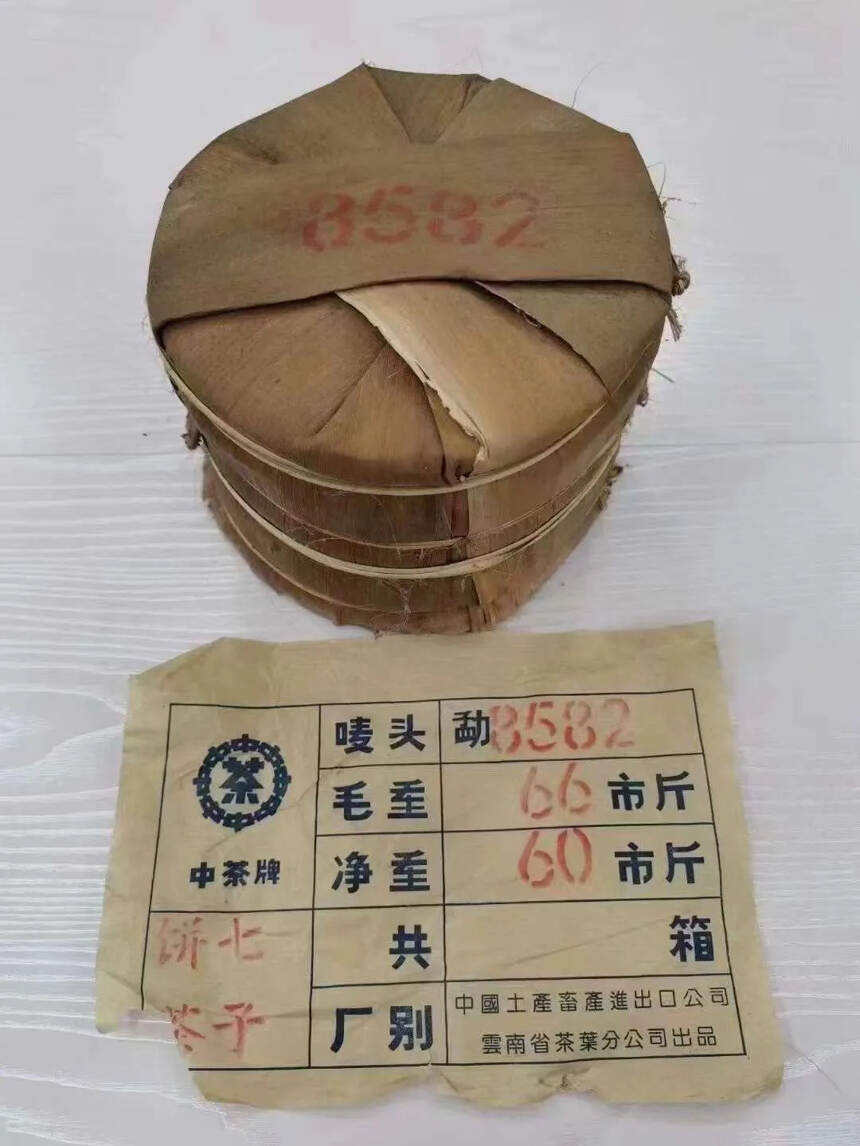 8582
茶
中茶牌
唛头 勐8582
毛重 66市斤
净重 60市斤
共 箱
七子
饼茶
厂别 中國土產畜產進出口公司
雲南省茶葉分公司出品